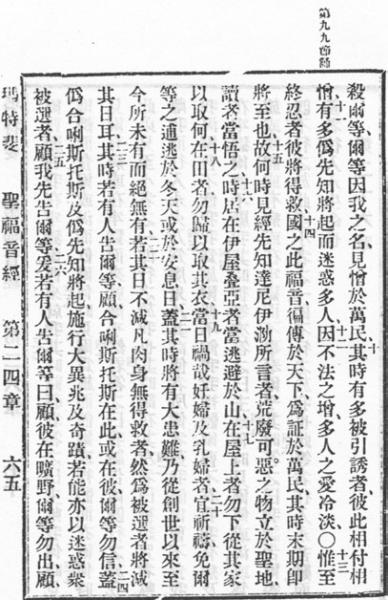 第九九節
十
殺爾等、爾等因我之名、見憎於萬民、其時有多被引誘者、彼此相付、相
十一 十二 十三
憎、有多偽先知將起、而迷惑多人、因不法之增、多人之愛冷淡〇惟至
十四
終忍者、彼將得救、國之此福音徧傳於天下、為証於萬民、其時末期即
十五
將至也、故何時見經先知達尼伊泐所言者、荒廢可惡之物、立於聖地、
十六 十七
讀者當悟之時、居在伊屋疊亞者、當逃避於山、在屋上者、勿下從其家
十八 二十
以取何、在田者、勿歸以取其衣、當日禍哉妊婦及乳婦者、宜祈禱免爾
二一
等之逋逃於冬天、或於安息日、蓋其時將有大患難、乃從創世以來至
二二
今所未有、而絕無有、若其日不減、凡肉身無得救者、然為被選者、將減
二三 二四
其日耳、其時若有人告爾等、顧合唎斯托斯在此、或在彼、爾等勿信、蓋
偽合唎斯托斯及偽先知將起、施行大異兆及奇蹟、若能、亦以迷惑衆
二五 二六
被選者、顧我先告爾等、爰若有人告爾等曰、顧彼在曠野、爾等勿出、顧
瑪特斐 聖福音經 第二四章 六五